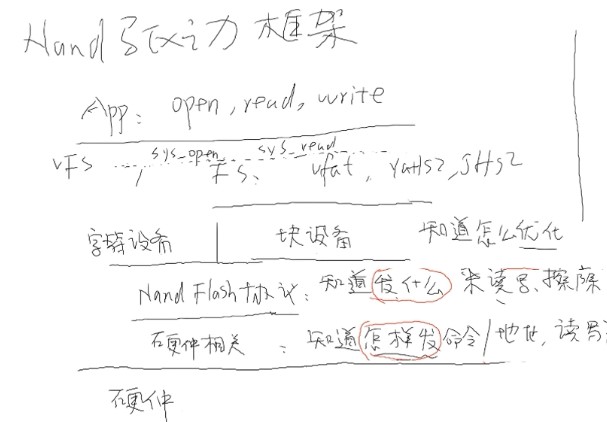 Nand驱动框架
App: open, read, write
VFS sys_open sys_read
FS: vfat, yaffs2, jffs2
字符设备 块设备 知道怎么优化
Nand Flash协议: 知道发什么 来读写、擦除
硬件相关 : 知道怎样发命令/地址, 读写
硬件